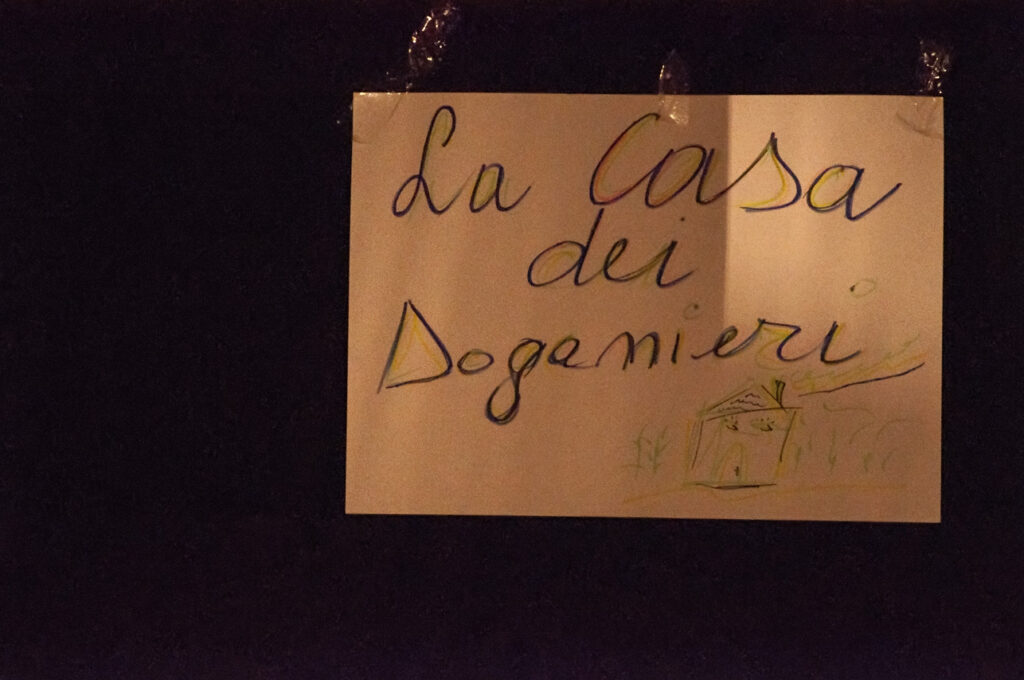 La Casa
dei
Doganieri